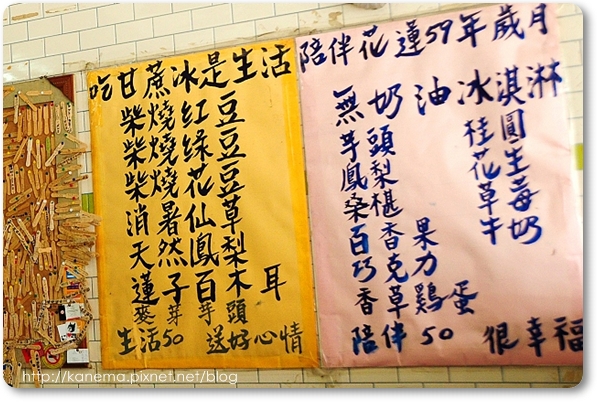 吃甘蔗冰是生活
柴燒红豆
柴燒绿豆
柴燒花豆
消暑仙草
天然鳳梨
蓮子百木耳
麥芽芋頭
生活50 送好心情
陪伴花蓮59年歲月
無奶油冰淇淋
芋頭 桂圓
鳳梨 花生
桑椹 草莓
百香果 牛奶
巧克力
香草 雞蛋
陪伴50 很幸福
http://kanema.pixnet.net/blog